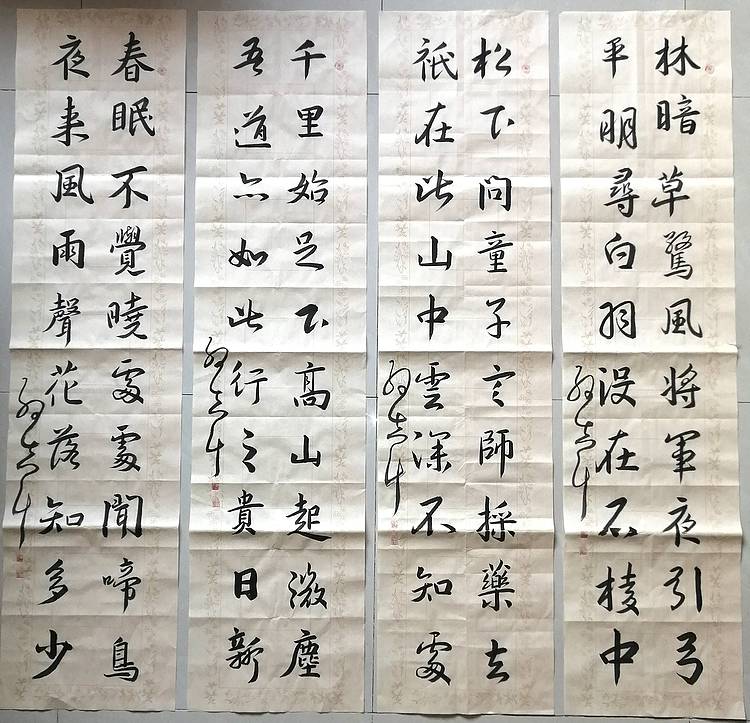 林暗草驚風將軍夜引弓
平明尋白羽没在石棱中
松下問童子言師採藥去
祇在此山中雲深不知處
千里始足下高山起微塵
吾道亦如此行之貴日新
春眠不覺曉處處聞啼鳥
夜来風雨聲花落知多少